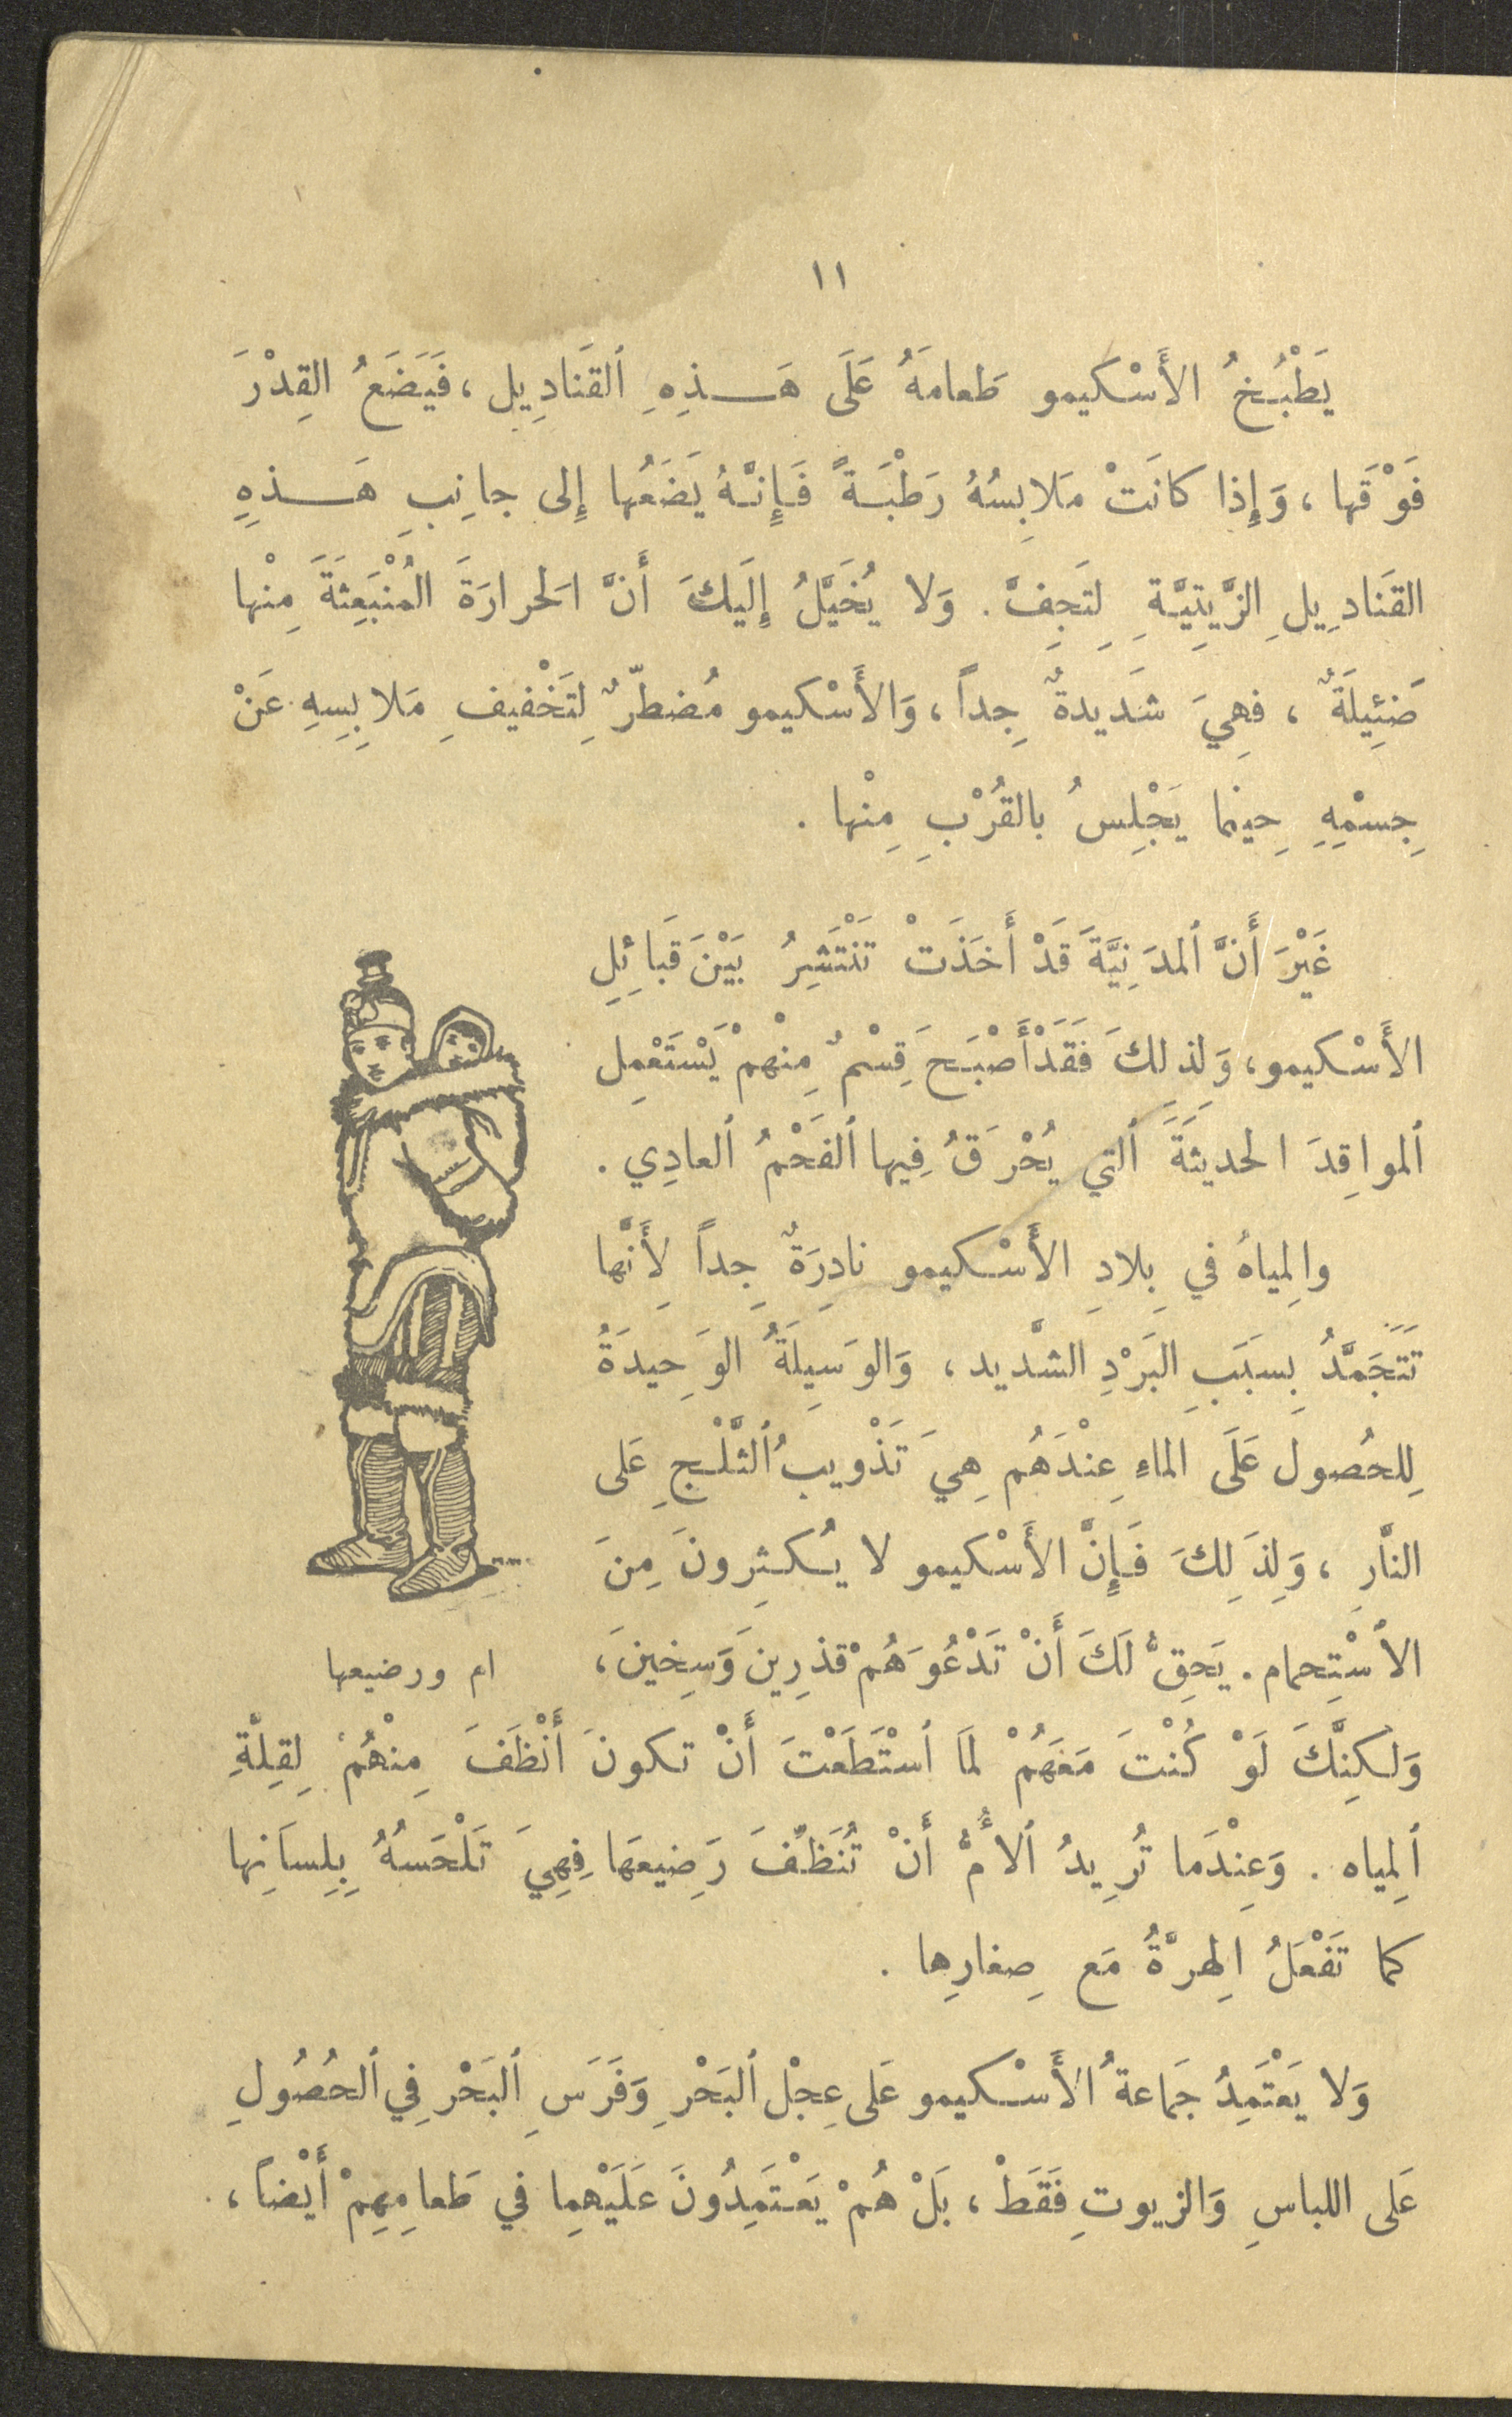 ١١
يَطْبُخُ الأَسْكيمو طَعامَهُ عَلَى هَـذِهِ ٱلقَنَادِيل ، فَيَضَعُ القِدْرَ
فَوْقَها ، وَإِذا كانَتْ مَلابِسُهُ رَطْبَةً فَإِنَّهُ يَضَعُها إِلى جانِبِ هَـذِهِ
القَنَادِيلِ الزَّيتِيَّةِ لِتَجِفَّ . وَلا يُخَيَّلُ إِلَيكَ أَنَّ الحَرارَةَ المُنْبَعِثَةَ مِنْها
ضَئِيلَةٌ ، فهِيَ شَديدةٌ جِداً ، وَالأَسْكيمو مُضطرٌّ لِتَخْفيفِ مَلابِسِهِ عَنْ
جِسْمِهِ حِينما يَجْلِسُ بالقُرْبِ مِنْها .
غَيْرَ أَنَّ ٱلمدَنِيَّةَ قَدْ أَخَذَتْ تَنْتَشِرُ بَيْنَ قَبَائِلِ
الأَسْكيمو ، وَلذلكَ فَقَدْ أَصْبَحَ قِسْمٌ مِنْهمْ يَسْتَعْمِل
ٱلمواقِدَ الحديثَةَ ٱلتي يُحْرَقُ فِيها ٱلفَحْمُ ٱلعادِي .
والمِياهُ في بِلادِ الأَسْكيمو نادِرَةٌ جِداً لِأَنَّها
تَتَجَمَّدُ بِسبَبِ البَرْدِ الشَّديد ، وَالوَسِيلَةُ الوَحِيدَةُ
لِلحُصول عَلَى الماءِ عِنْدَهُم هِيَ تَذْويبُ ٱلثَّلْجِ عَلى
النَّارِ ، وَلِذَلِكَ فَإِنَّ الأَسْكيمو لا يُكثِرونَ مِنَ
الٱسْتِحمام . يَحِقُّ لَكَ أَنْ تَدْعُوَهُمْ قذرِينَ وَسِخينَ ،
ام ورضيعها
وَلكِنَّكَ لَوْ كُنْتَ مَعَهُمْ لمَا ٱسْتَطَعْتَ أَنْ تكونَ أَنْظَفَ مِنْهُمْ لِقِلَّةِ
ٱلمِياه . وَعِنْدَما تُرِيدُ ٱلأُمُّ أَنْ تُنَظِّفَ رَضِيعَها فِهِيَ تَلْحَسُهُ بِلِسانِها
كما تَفْعَلُ الهِرَّةُ مَع صِغارِها .
وَلا يَعْتَمِدُ جَماعةُ الأَسْكيمو عَلى عِجْل ٱلبَحْرِ وَفَرَسِ ٱلبَحْر فِي ٱلحُصُولِ
عَلى اللباسِ وَالزيوتِ فَقَطْ ، بَلْ هُمْ يَعْتَمِدُونَ عَلَيْهِما في طَعامِهِمْ أَيْضاً ،